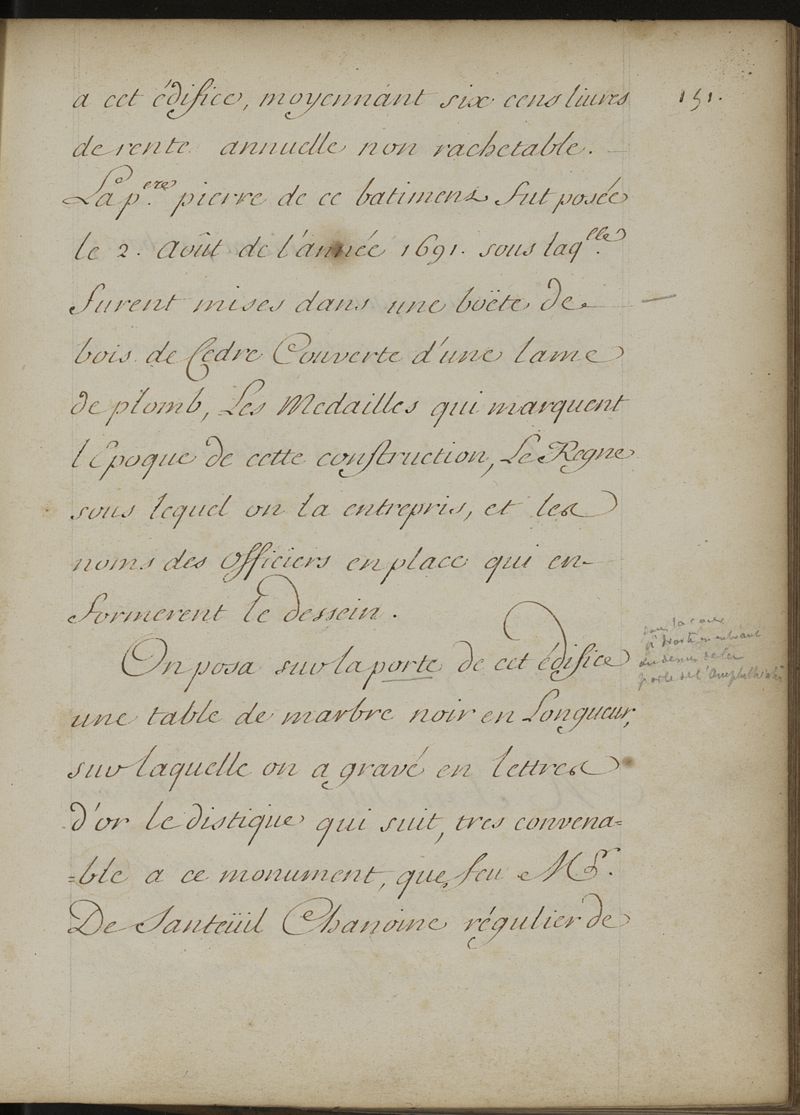 151.
a cet édifice, moyennant six cens livres
de rente annuelle non rachetable.
La p.ere pierre de ce batimens fut posée
le 2. Août de l'année 1691. sous laq.lle
furent mises dans une boëte de
bois de Cedre Couverte d'une lame
de plomb, Les Medailles qui marquent
l'Epoque de cette construction, Le Regne
sous lequel on la entrepris, et les
noms des Officiers en place qui en
formerent le dessein.
On posa sur la porte de cet édifice
une table de marbre noir en Longueur,
sur laquelle on a gravé en lettres
d'or le distique qui suit, tres convena=
=ble a ce monument, que feu Mr.
De Santeüil Chanoine régulier de
sous la
à droite
au dessus de la
porte de l'Amphithéatre